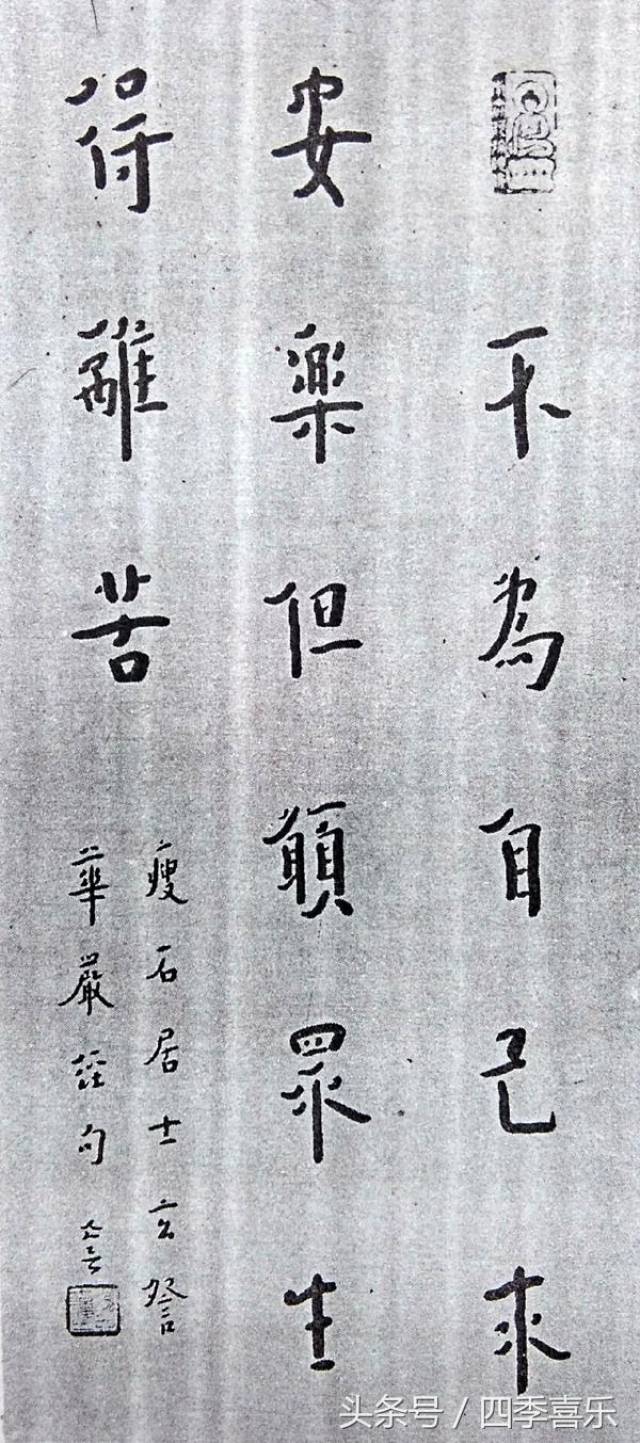 不為自己求
安樂但願眾生
得離苦
瘦石居士玄詧
華嚴經句
头条号 / 四季喜乐